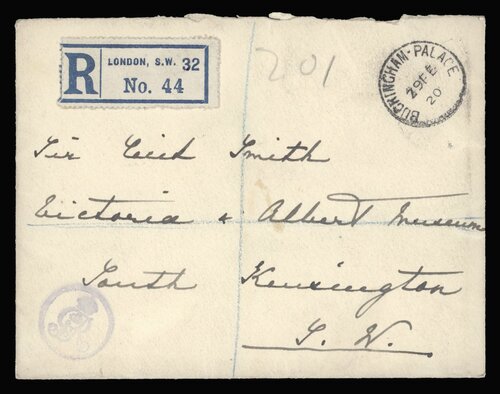 R LONDON, S.W. 32
No. 44
201
BUCKINGHAM-PALACE
20
Sir Cecil Smith
Victoria & Albert Museum
South Kensington
S.W.